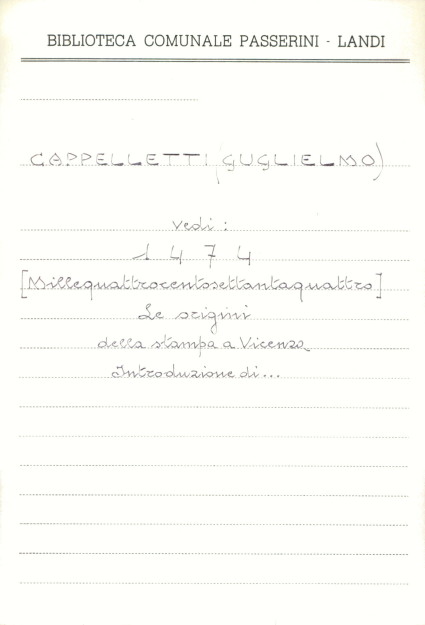 BIBLIOTECA COMUNALE PASSERINI - LANDI
CAPPELLETTI (GUGLIELMO)
vedi :
1 4 7 4
[Millequattrocentosettantaquattro]
Le origini
della stampa a Vicenza
Introduzione di...